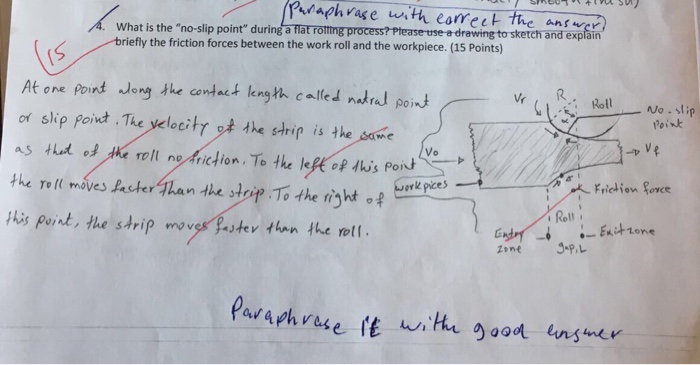 (Paraphrase with correct the answer)
4. What is the "no-slip point" during a flat rolling process? Please use a drawing to sketch and explain
briefly the friction forces between the work roll and the workpiece. (15 Points)
15
At one point along the contact length called natral point
or slip point. The velocity of the strip is the same
as that of the roll no friction. To the left of this point
the roll moves faster than the strip. To the right of
this point, the strip moves faster than the roll.
Vr
R
Roll
No-slip
Point
Vo
Vf
work pices
Friction force
Roll
Entry
zone
gap, L
Exit zone
Paraphrase it with good